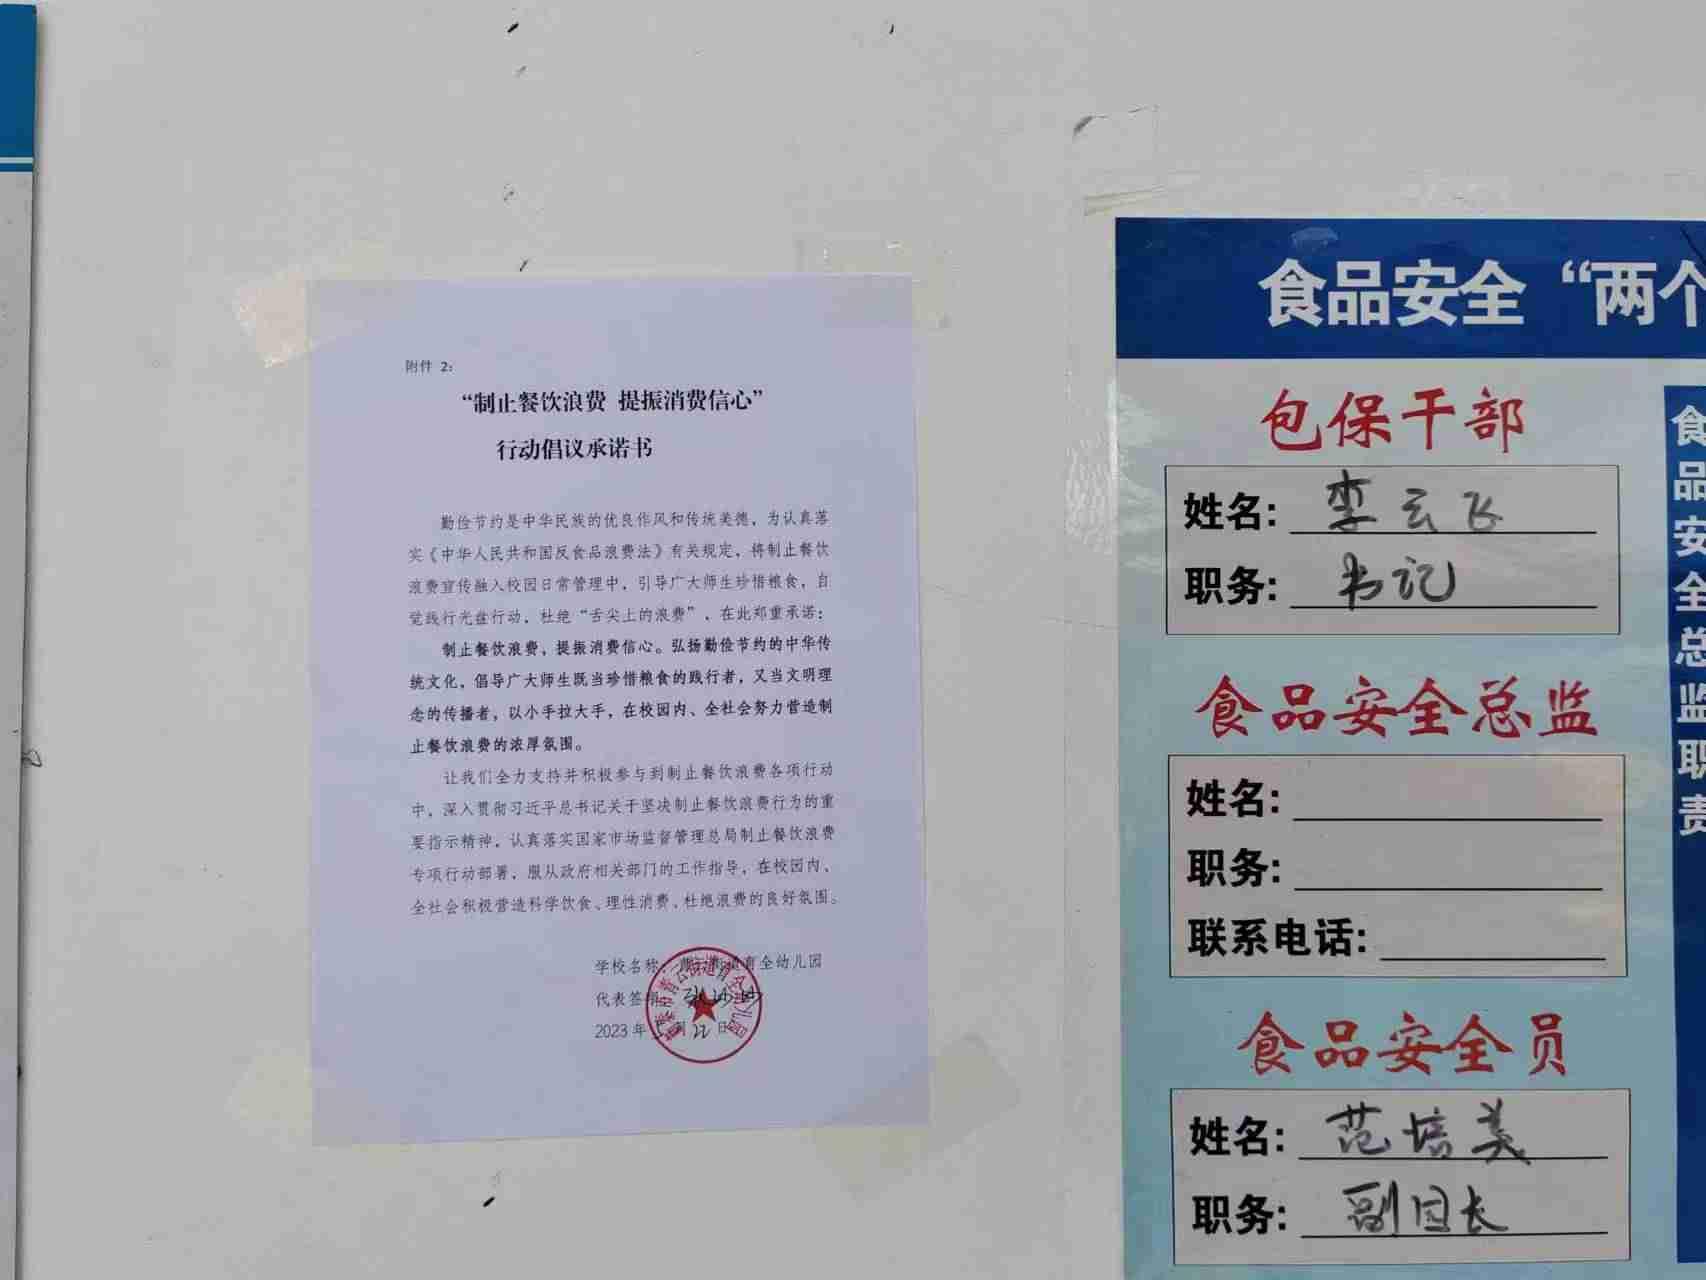 附件 2:
“制止餐饮浪费 提振消费信心”
行动倡议承诺书
勤俭节约是中华民族的优良作风和传统美德，为认真落
实《中华人民共和国反食品浪费法》有关规定，将制止餐饮
浪费宣传融入校园日常管理中，引导广大师生珍惜粮食，自
觉践行光盘行动，杜绝“舌尖上的浪费”，在此郑重承诺：
制止餐饮浪费，提振消费信心。弘扬勤俭节约的中华传
统文化，倡导广大师生既当珍惜粮食的践行者，又当文明理
念的传播者，以小手拉大手，在校园内、全社会努力营造制
止餐饮浪费的浓厚氛围。
让我们全力支持并积极参与到制止餐饮浪费各项行动
中，深入贯彻习近平总书记关于坚决制止餐饮浪费行为的重
要指示精神，认真落实国家市场监督管理总局制止餐饮浪费
专项行动部署，服从政府相关部门的工作指导，在校园内、
全社会积极营造科学饮食、理性消费、杜绝浪费的良好氛围。
学校名称：青云街道育全幼儿园
代表签
2023 年 月 22 日
食品安全“两个
包保干部
姓名: 李云飞
职务: 书记
食品安全总监
姓名:
职务:
联系电话:
食品安全员
姓名: 范培美
职务: 副园长
食品安全总监职责